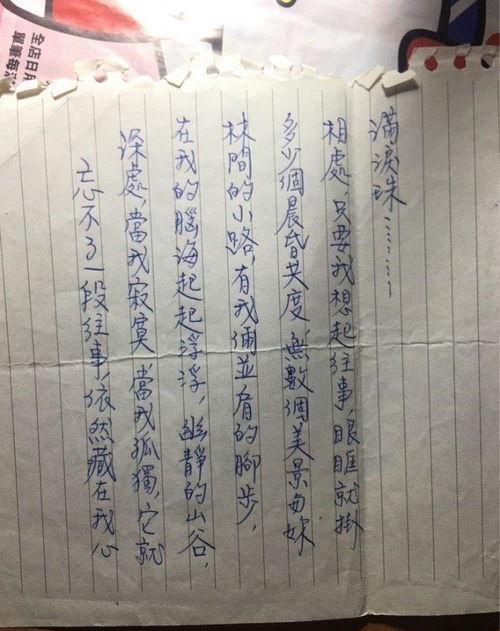 忘不了一段往事,依然藏在我心
深處,當我寂寞 當我孤獨,它就
在我的腦海起起浮浮,幽靜的山谷,
林間的小路,有我倆並肩的腳步,
多少個晨昏共度 無數個美景與妳
相處 只要我想起往事,眼眶就掛
滿淚珠…………
全店日